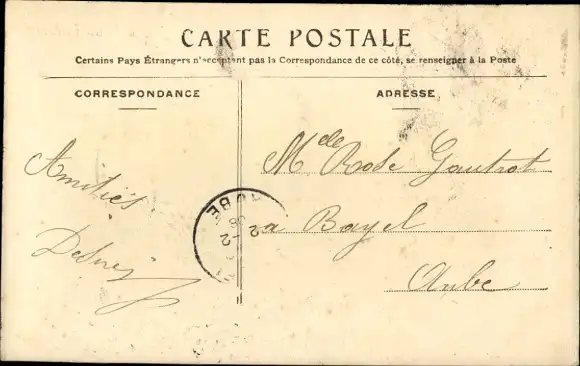 CARTE POSTALE
Certains Pays Étrangers n'acceptant pas la Correspondance de ce côté, se renseigner à la Poste
CORRESPONDANCE
ADRESSE
Amitiés.
Melle Rose Gautrot
a Bayel
Aube
AUBE